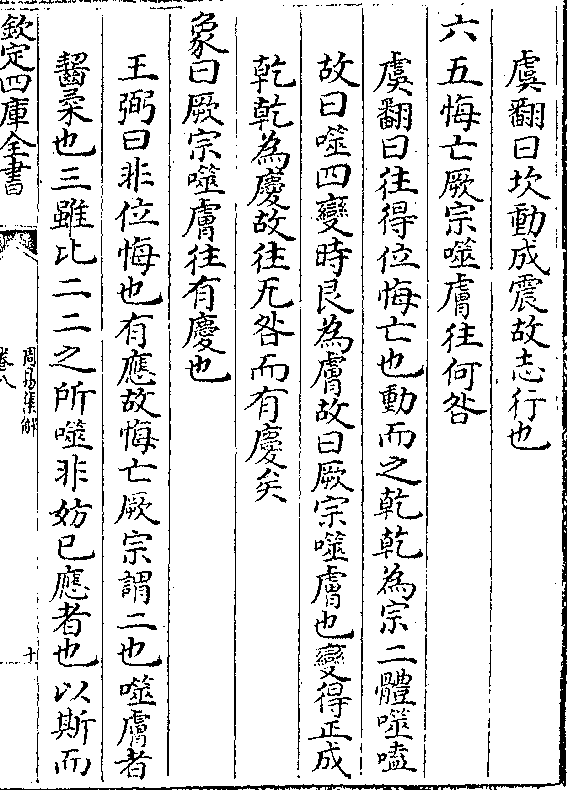 虞翻曰坎動成震故志行也
六五悔亡厥宗噬膚往何咎
虞翻曰往得位悔亡也動而之乾乾為宗二體噬嗑
故曰噬四變時艮為膚故曰厥宗噬膚也變得正成
乾乾為慶故往无咎而有慶矣
象曰厥宗噬膚往有慶也
王弼曰非位悔也有應故悔亡厥宗謂二也噬膚者
齧柔也三雖比二二之所噬非妨已應者也以斯而
欽定四庫全書
周易集解
卷八
十